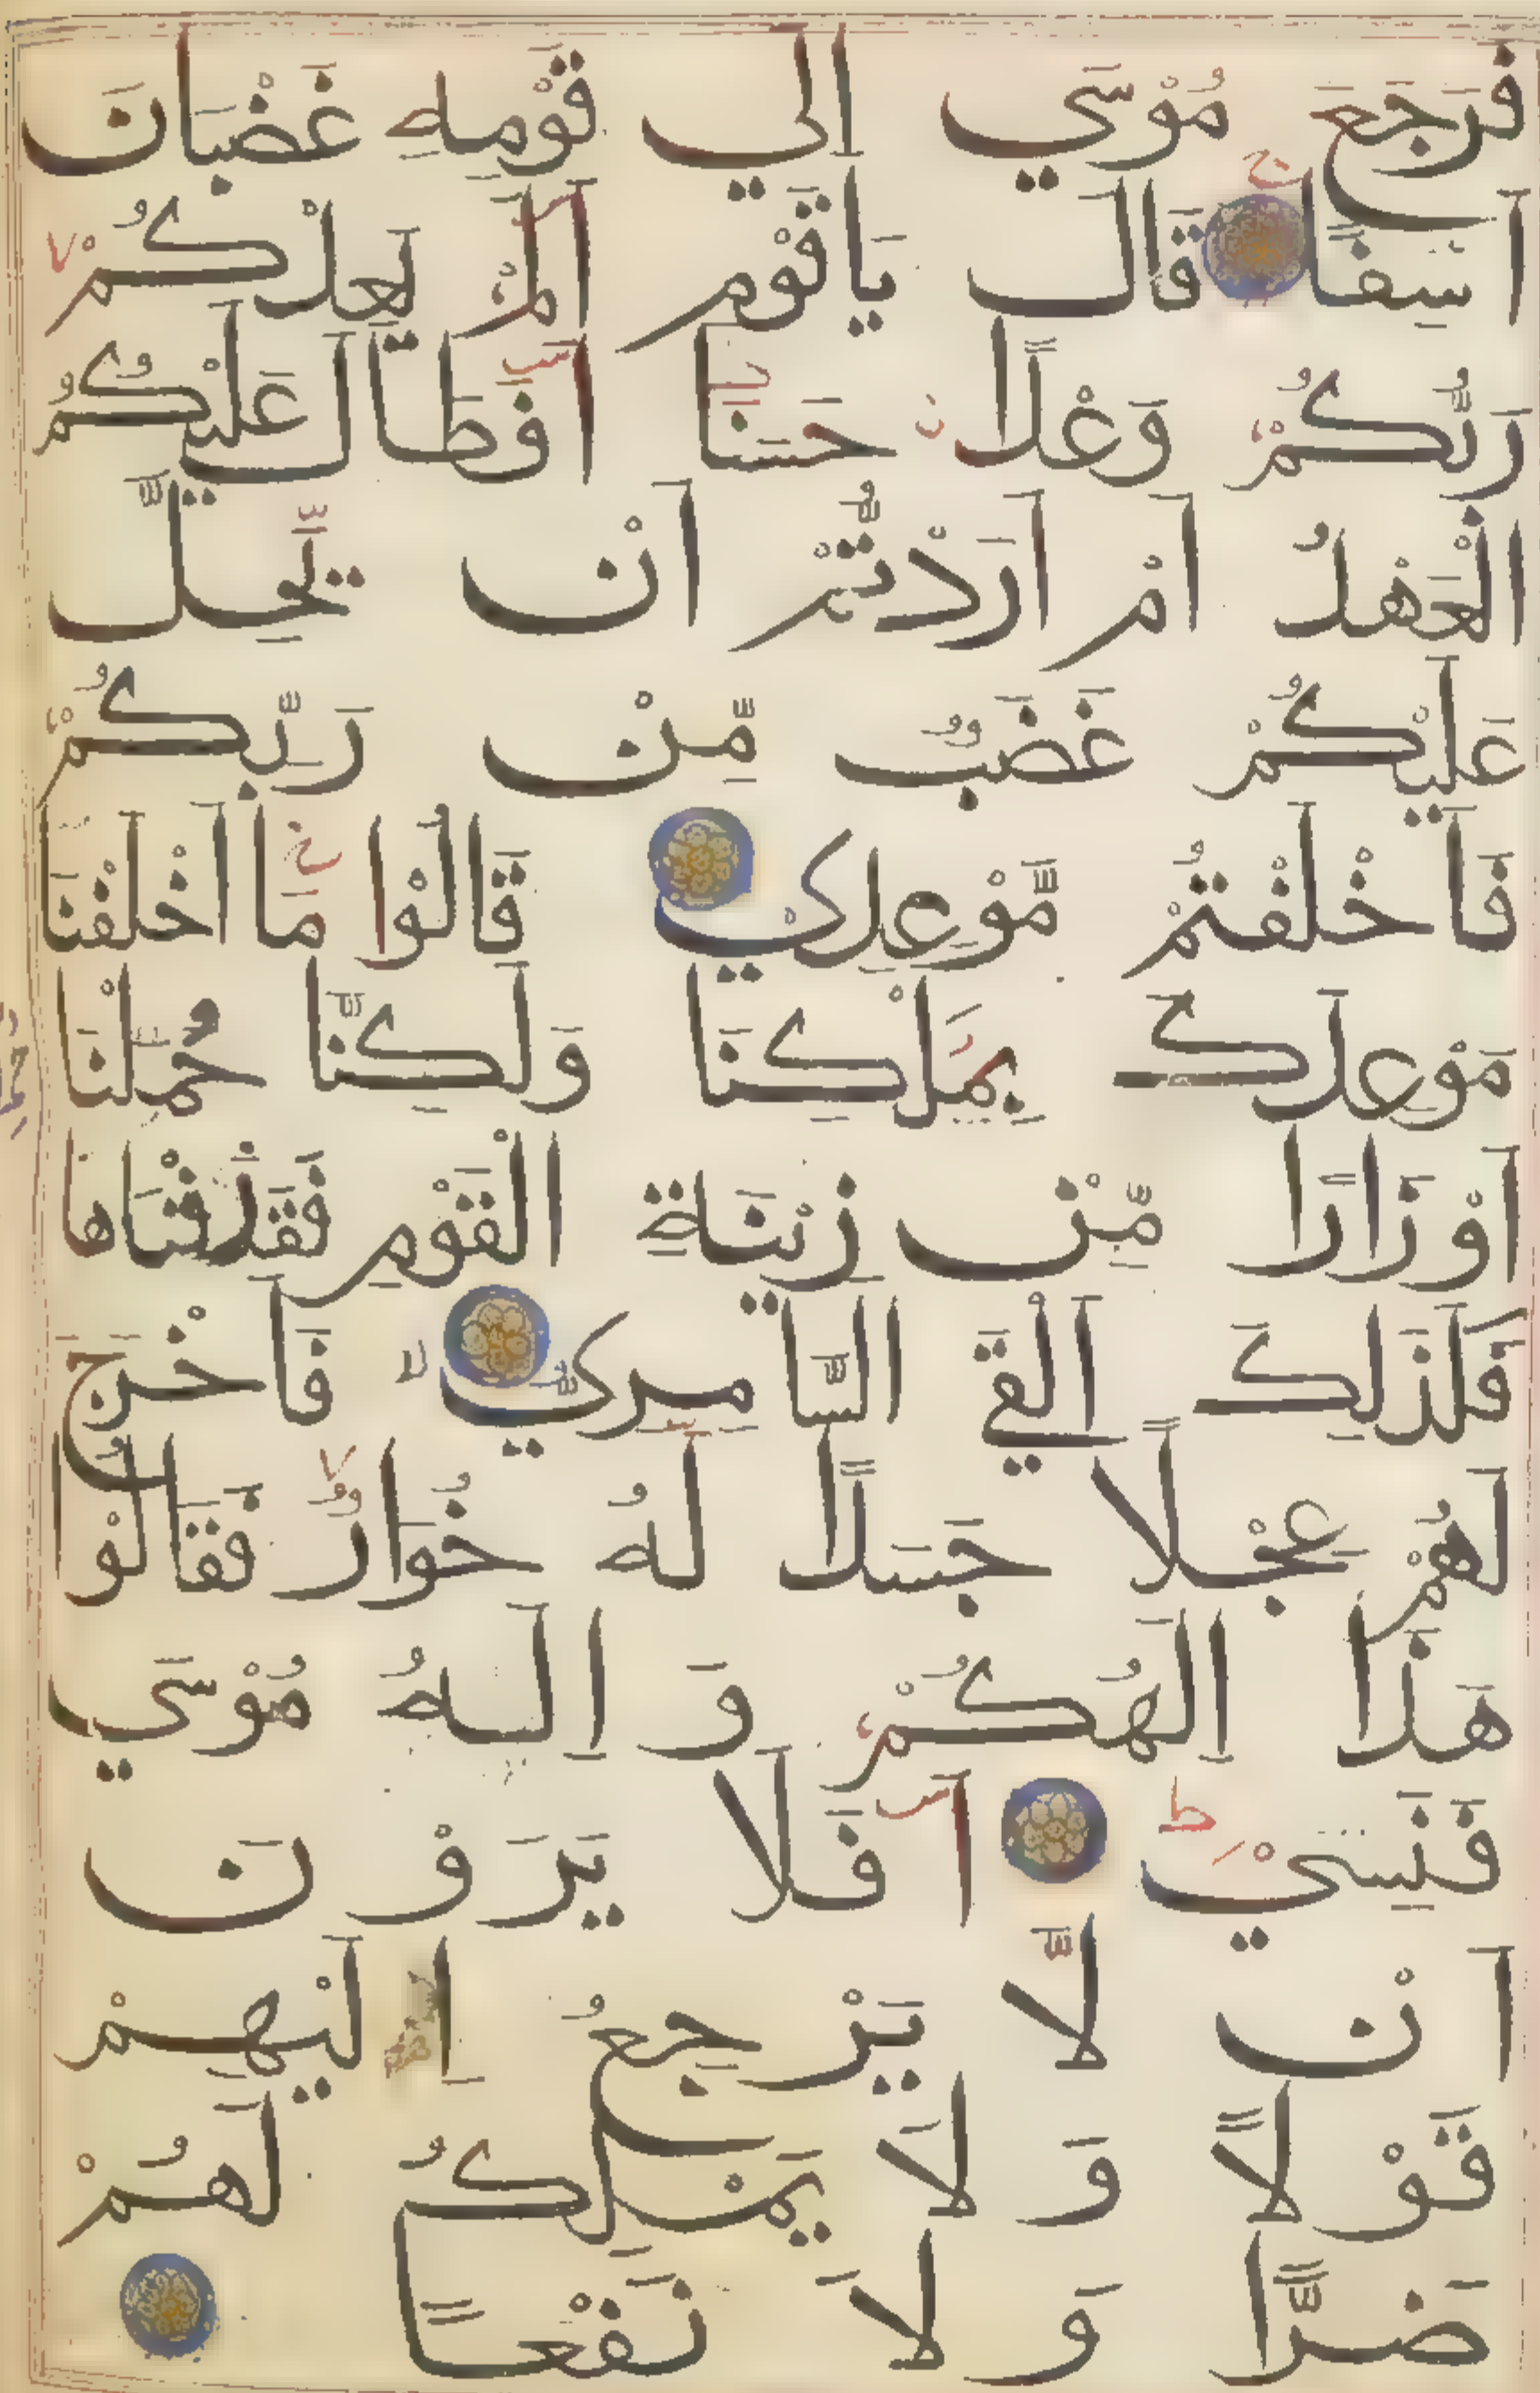 فَرَجَعَ مُوْسَي اِلَي قَوْمِهِ غَضْبَانَ
اَسِفًا قَالَ يَا قَوْمِ اَلَمْ يَعِدْكُمْ
رَبُّكُمْ وَعْدًا حَسَنًا اَفَطَالَ عَلَيْكُمُ
الْعَهْدُ اَمْ اَرَدْتُّمْ اَنْ يَّحِلَّ
عَلَيْكُمْ غَضَبٌ مِّنْ رَّبِّكُمْ
فَاَخْلَفْتُمْ مَّوْعِدِيْ قَالُوْا مَا اَخْلَفْنَا
مَوْعِدَكَ بِمَلْكِنَا وَلَكِنَّا حُمِّلْنَا
اَوْزَارًا مِّنْ زِيْنَةِ الْقَوْمِ فَقَذَفْنَاهَا
فَكَذَلِكَ اَلْقَي السَّامِرِيُّ فَاَخْرَجَ
لَهُمْ عِجْلًا جَسَدًا لَهُ خُوَارٌ فَقَالُوْا
هَذَا اِلَهُكُمْ وَ اِلَهُ مُوْسَي
فَنَسِيَ اَفَلَا يَرَوْنَ
اَنْ لَّا يَرْجِعُ اِلَيْهِمْ
قَوْلًا وَ لَا يَمْلِكُ لَهُمْ
ضَرًّا وَ لَا نَفْعًا